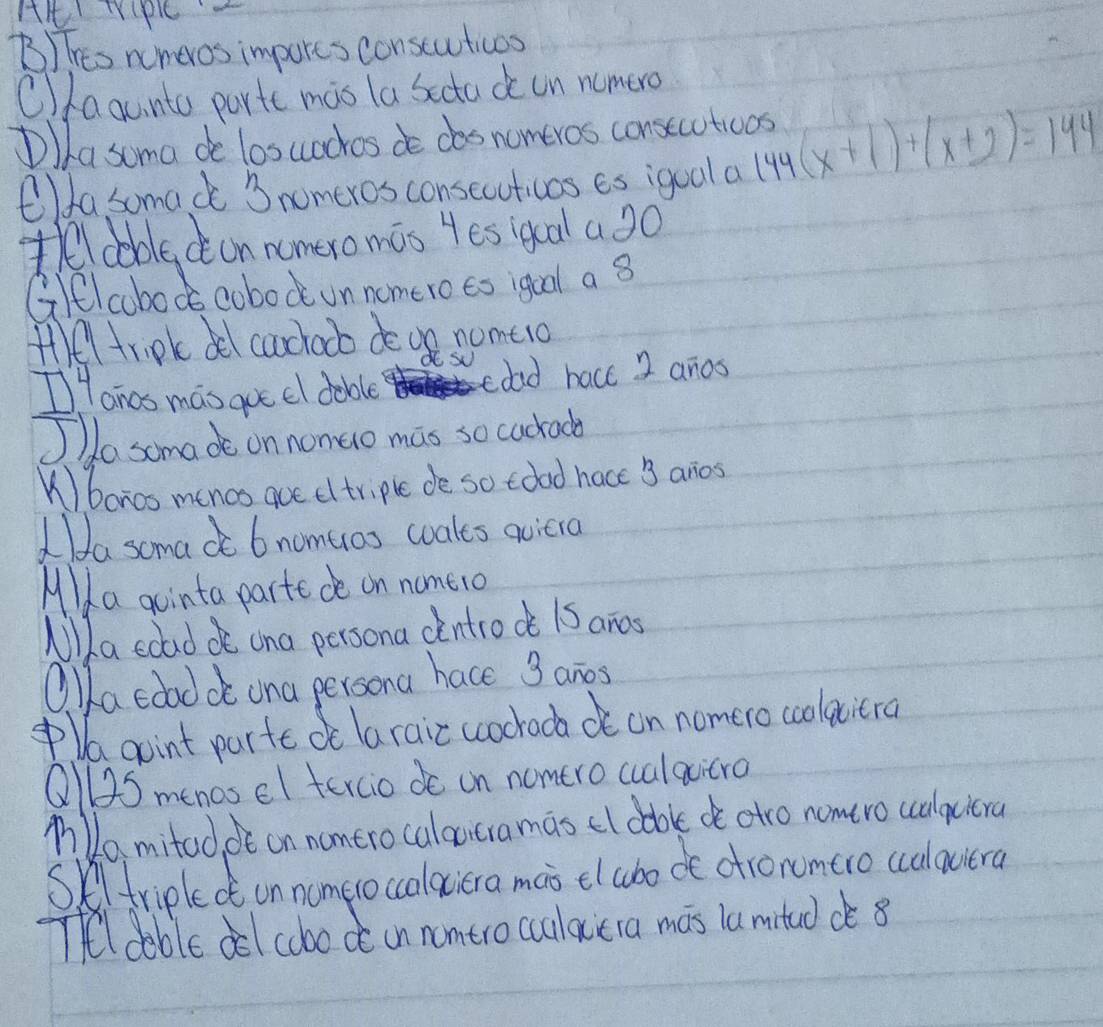 triple
B) Tres numeros impares consecuticos
C) La quinta parte más la Secta de un numero
D) La suma de los cuadros de dos numeros consecutivos
E) La suma de 3 numeros consecutivos es igual a 144 (x+1)+(x+2)=144
F) El doble de un numero más 4 es igual a 20
G) El cubo de cubo de un numero es igual a 8
H) El triple del cuadrado de un numero
I) 4 años más que el doble de su edad hace 2 años
J) La suma de un numero más so cuadrado
K) 6 años menos que el triple de so edad hace 3 años
L) La suma de 6 numeros cuales quiera
M) La quinta parte de un numero
N) La edad de una persona dentro de 15 años
O) La edad de una persona hace 3 años
P) La quint parte de la raiz cuadrada de un numero cualquiera
Q) 125 menos el tercio de un numero cualquiera
R) La mitad de un numero calquiera más el doble de otro numero cualquiera
S) El triple de un numero cualquiera más el cubo de otro numero cualquiera
T) El doble del cubo de un numero cualquiera más la mitad de 8